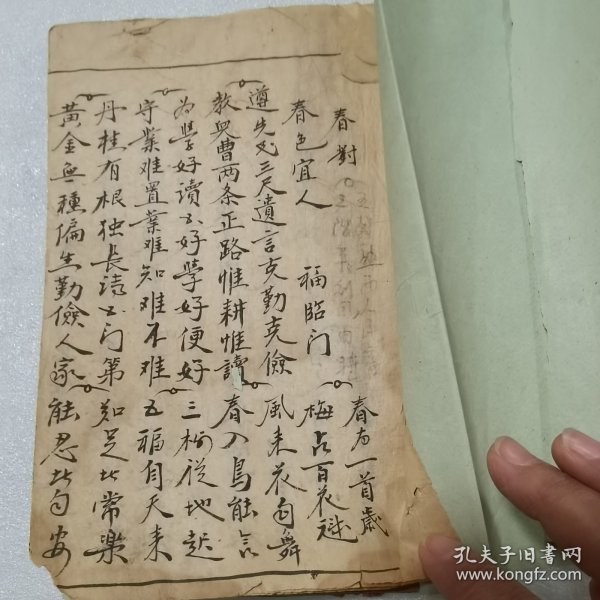 春對
春色宜人 福临门
遵先父三尺遺言克勤克儉
教兒曹两条正路惟耕惟讀
为學好讀书好學好便好
守業难置業难知难不难
丹桂有根独長诗书门第
黃金無種偏生勤儉人家
春为一首歲
梅占百花魁
風来花自舞
春入鳥能言
三杨從地起
五福自天来
知足比常樂
能忍比自安
孔夫子旧書网
www.kongfz.com